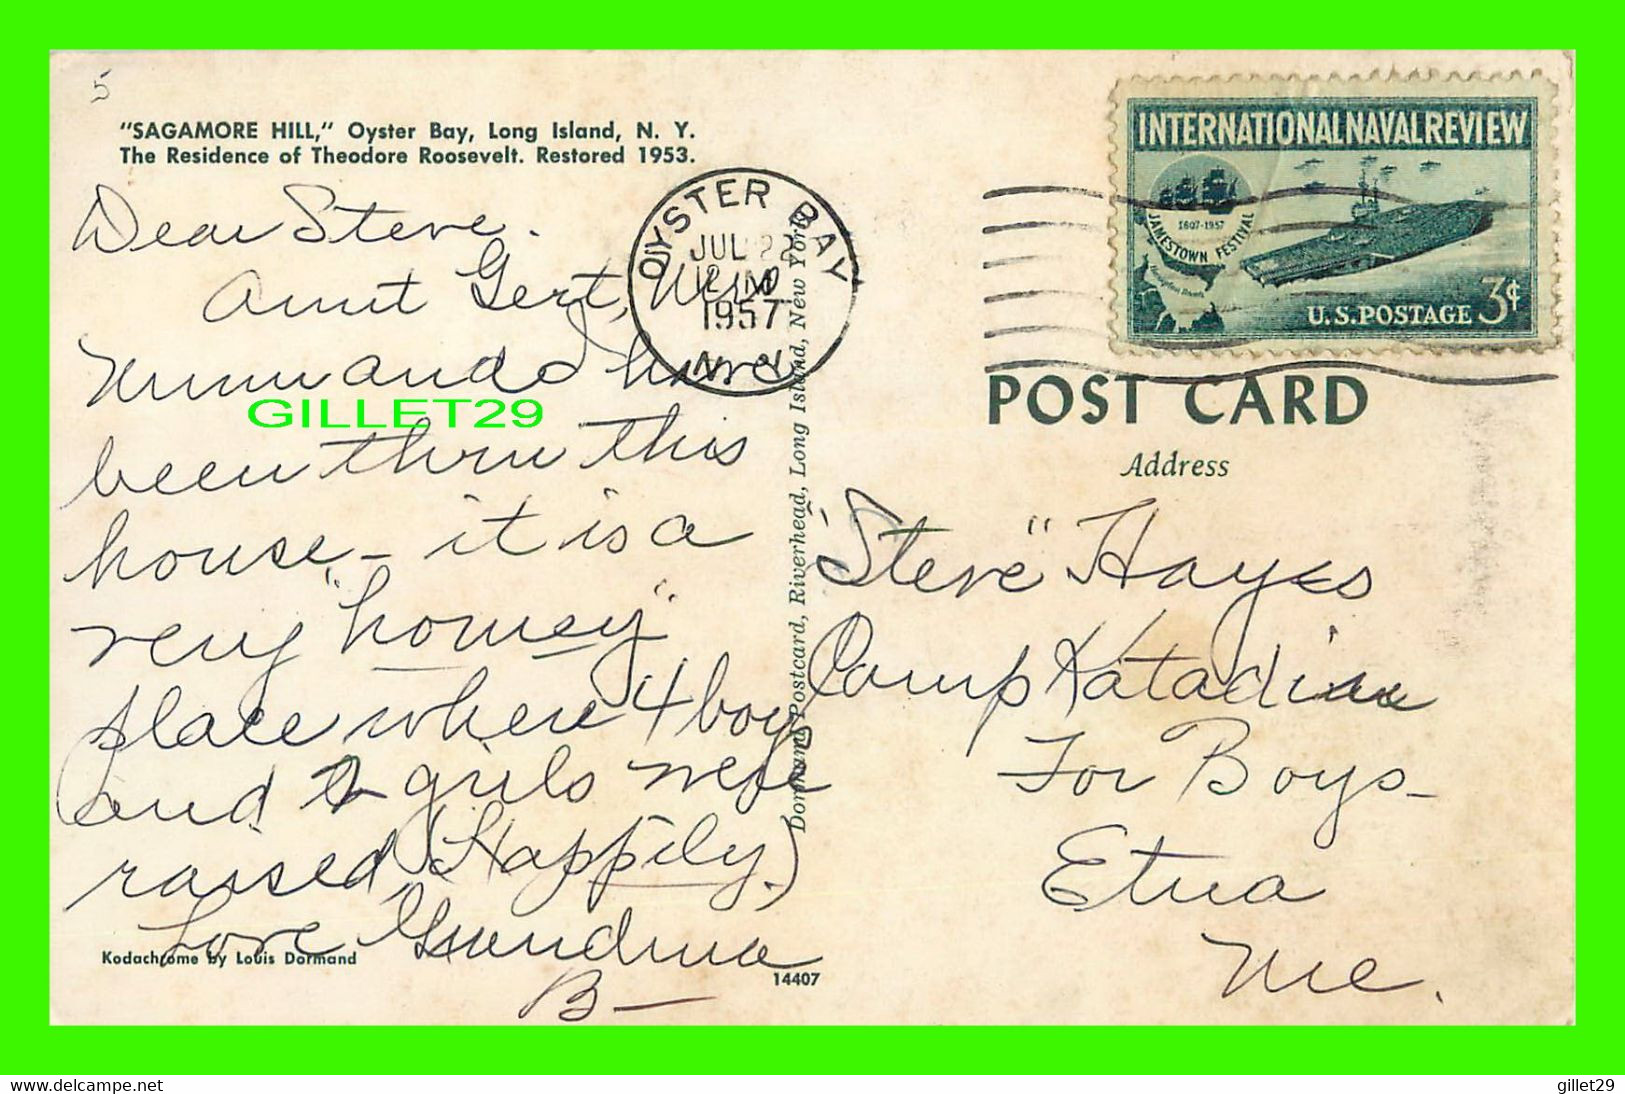 5
"SAGAMORE HILL," Oyster Bay, Long Island, N. Y.
The Residence of Theodore Roosevelt. Restored 1953.
Dear Steve.
Aunt Gert,
and I have
been thru this
house - it is a
very "homey"
place where 4 boys
and 2 girls were
raised (Happily.)
Love Grandma
B-
Kodachrome by Louis Dormand
14407
GILLET29
OYSTER BAY
JUL 22
1957
N. Y.
Dormand Postcard, Riverhead, Long Island, New York
INTERNATIONAL NAVAL REVIEW
1607-1957
JAMESTOWN FESTIVAL
Hampton Roads
U.S. POSTAGE 3¢
POST CARD
Address
"Steve" Hayes
Camp Katadin
For Boys-
Etna
Me.
delcampe.net
gillet29